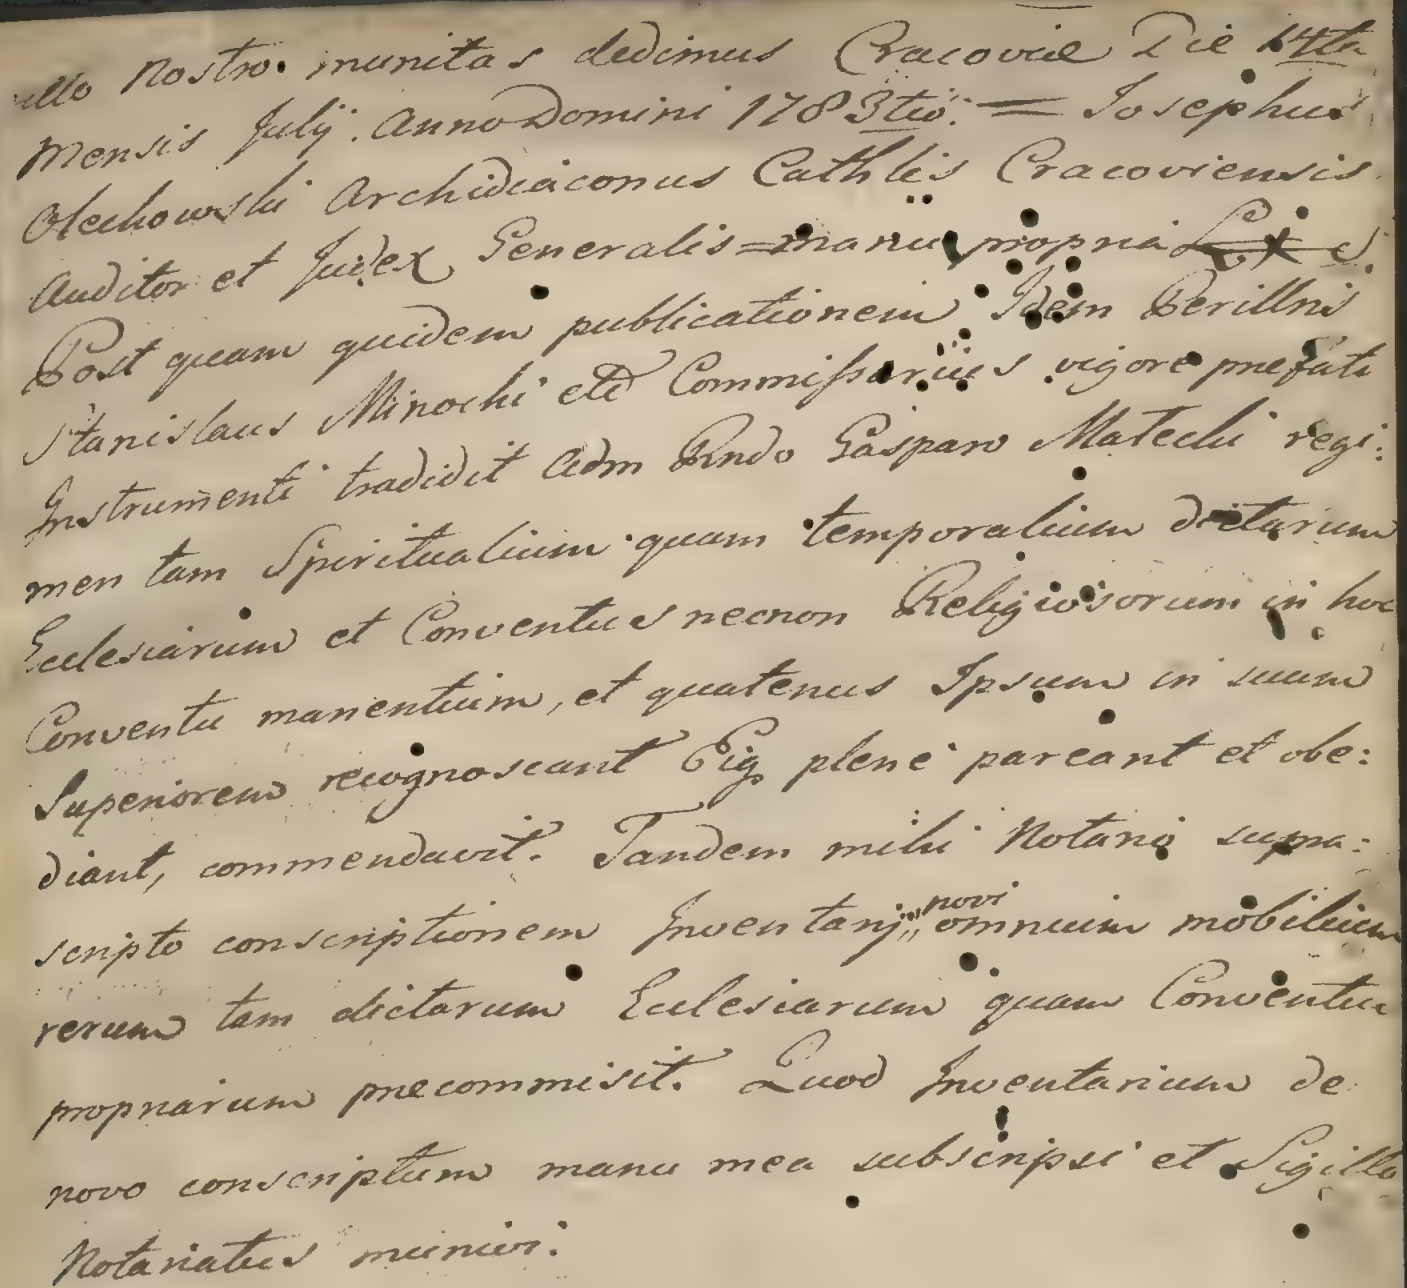 illo Nostro munitas dedimus Cracoviæ Die 14ta
Mensis Julij. Anno Domini 1783tio: = Josephus
Olechowski Archidiaconus Cathlis Cracoviensis
Auditor et Judex Generalis = manu propria L * S
Post quam quidem publicationem Idem Perillris
Stanislaus Minocki etc Commissarius vigore præfati
Instrumenti tradidit Adm Rndo Gasparo Matecki regi:
men tam Spiritualium quam temporalium dictarum
Ecclesiarum et Conventus necnon Religiosorum in hoc
Conventu manentium, et quatenus Ipsum in suum
Superiorem recognoscant Eiq plene pareant et obe:
diant, commendavit. Tandem mihi Notario supra:
scripto conscriptionem Inventarij novi omnium mobilium
rerum tam dictarum Ecclesiarum quam Conventu
propriarum præcommisit. Quod Inventarium de
novo conscriptum manu mea subscripsi et Sigillo
Notariatus munivi.